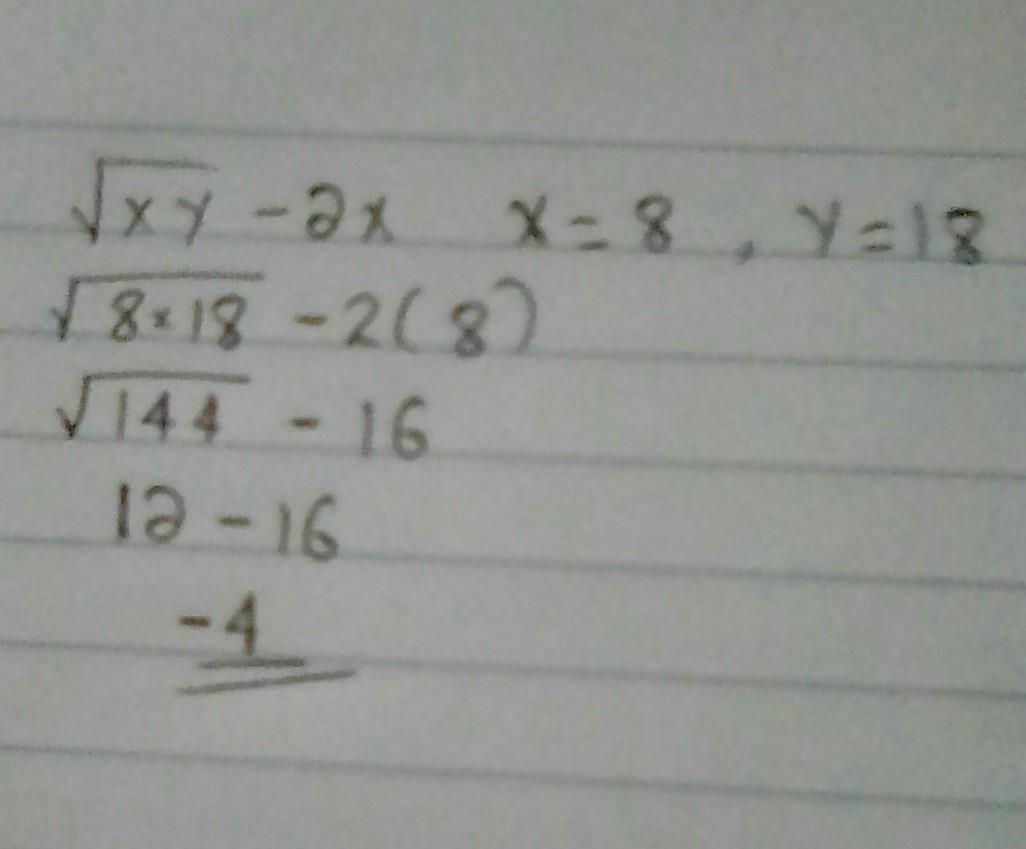 √xy - 2x  x = 8 , y = 18
√8×18 - 2(8)
√144 - 16
12 - 16
-4